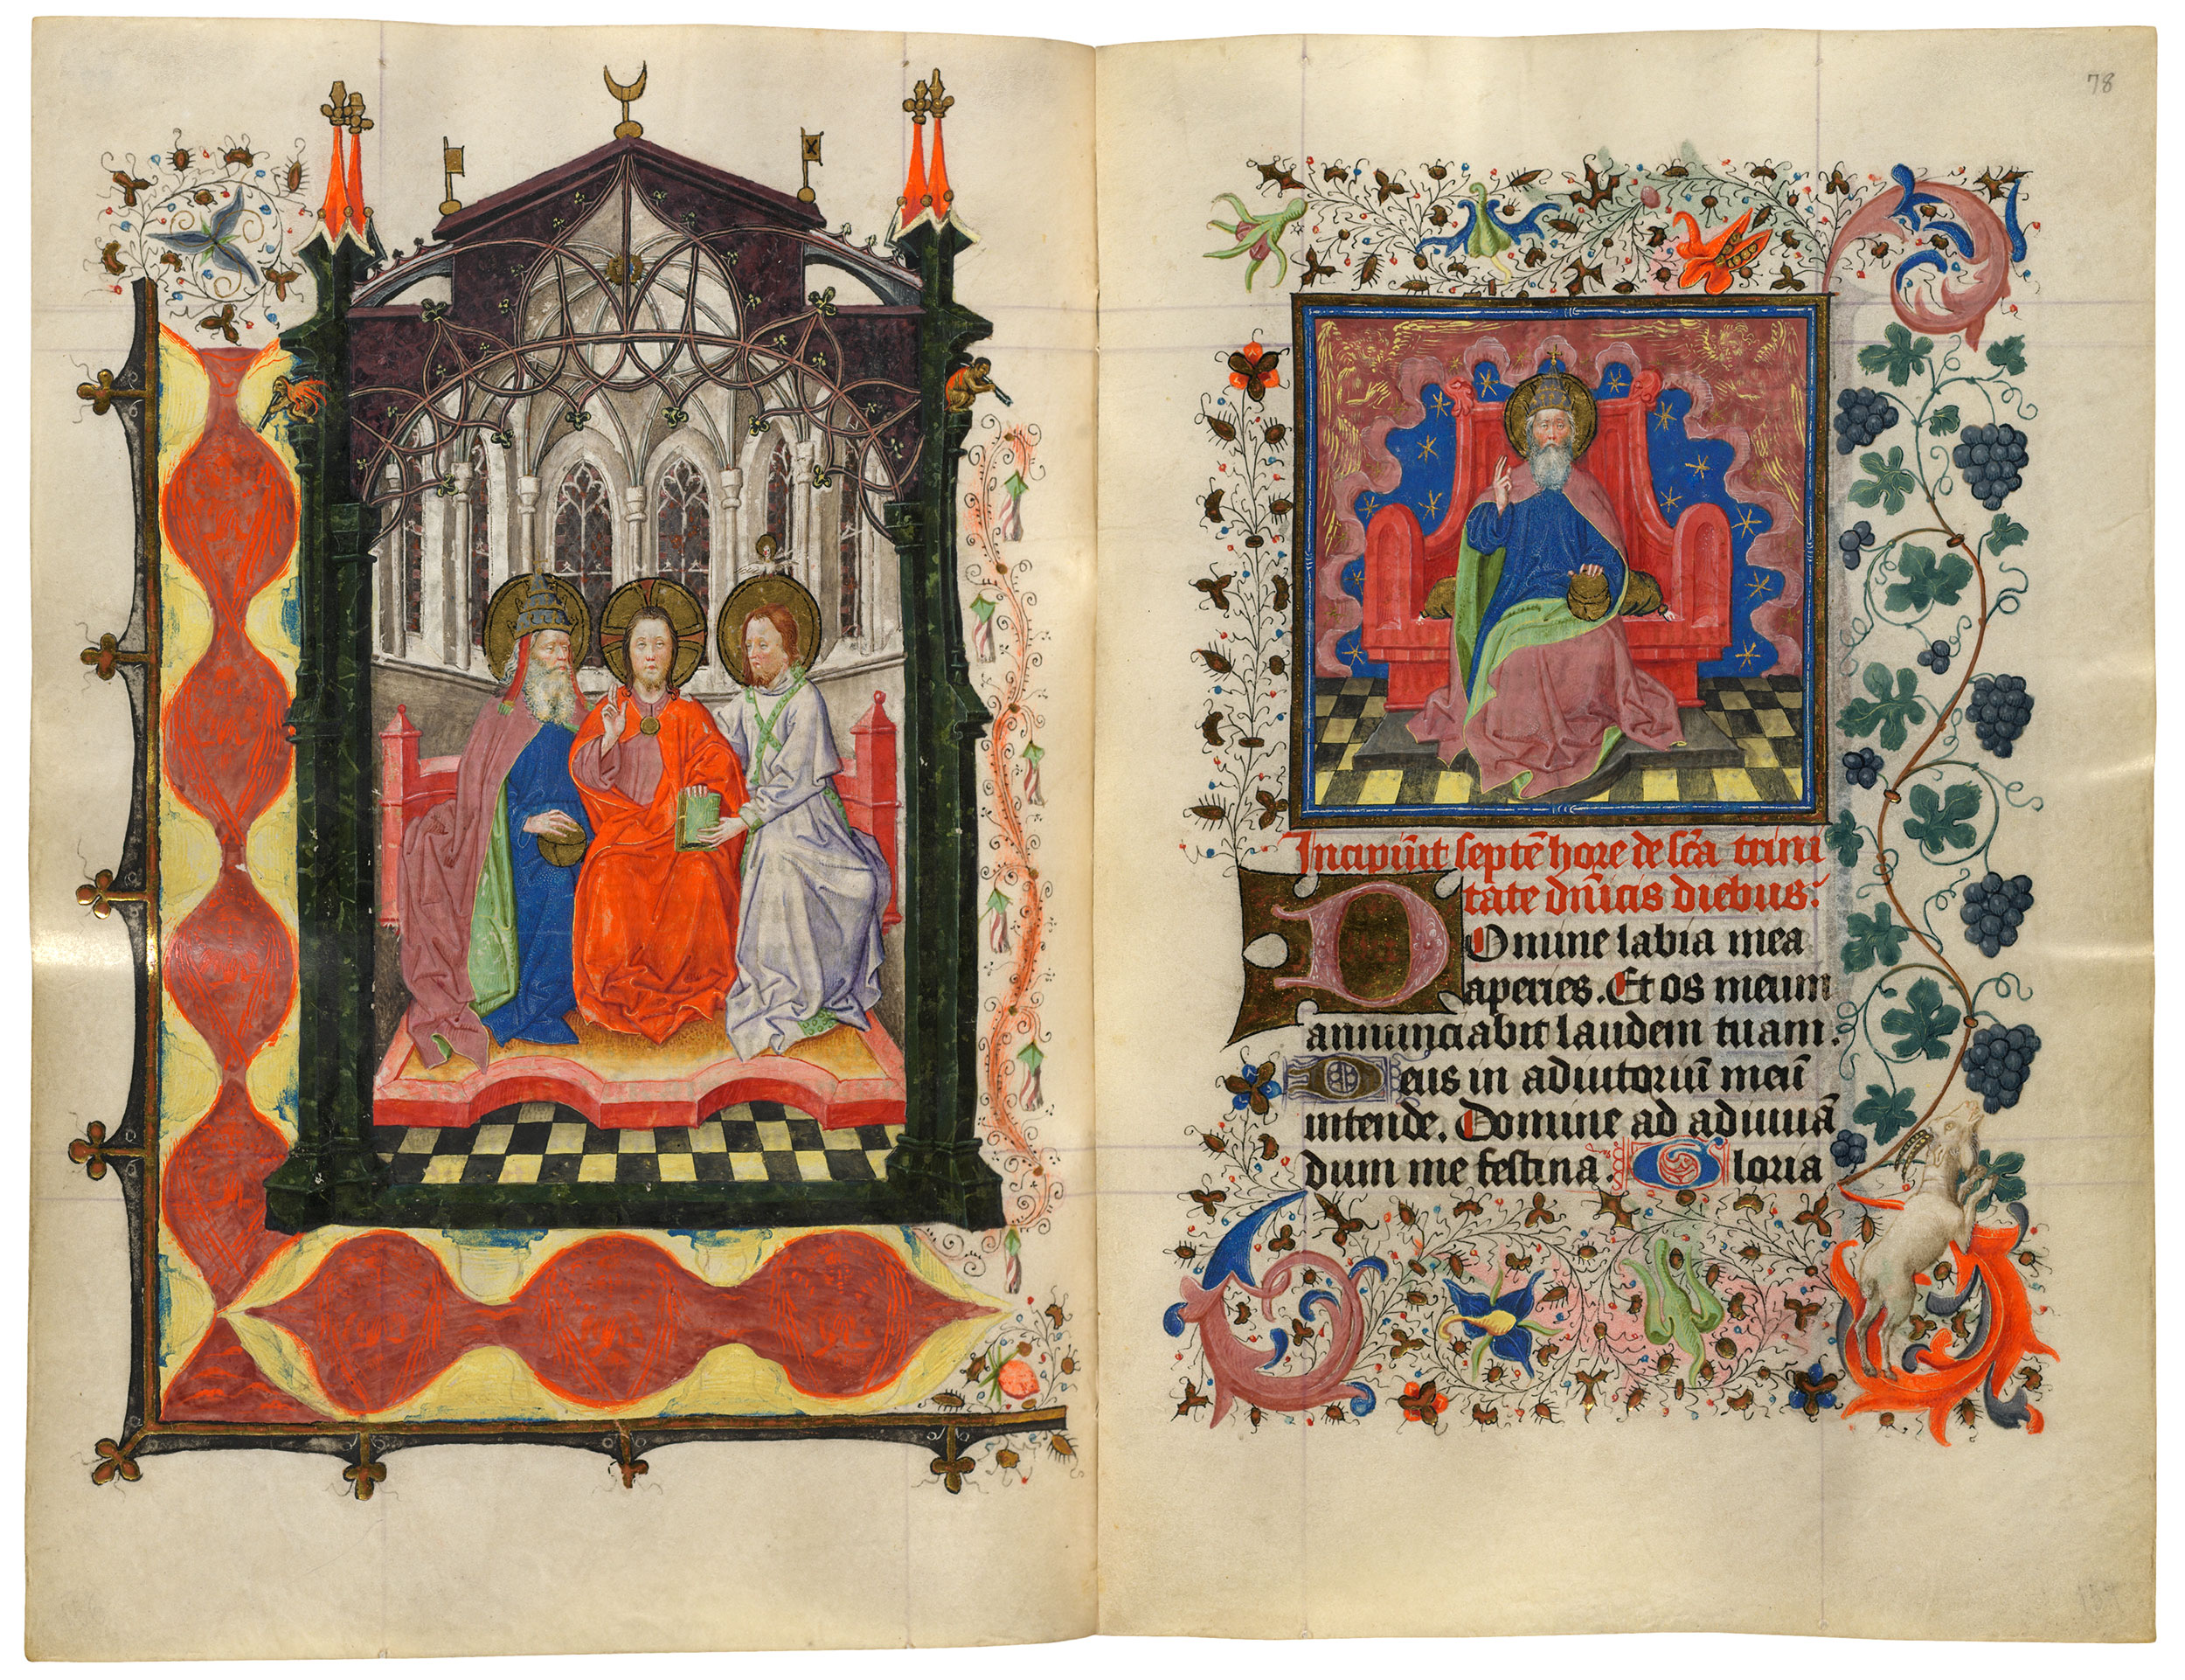 78
Incipiūt septē hore de scā trini
tate dn̄icis diebus:
Domine labia mea
aperies. Et os meum
annunciabit laudem tuam.
Deus in adiutoriū meū
intende. Domine ad adiuuā
dum me festina. Gloria